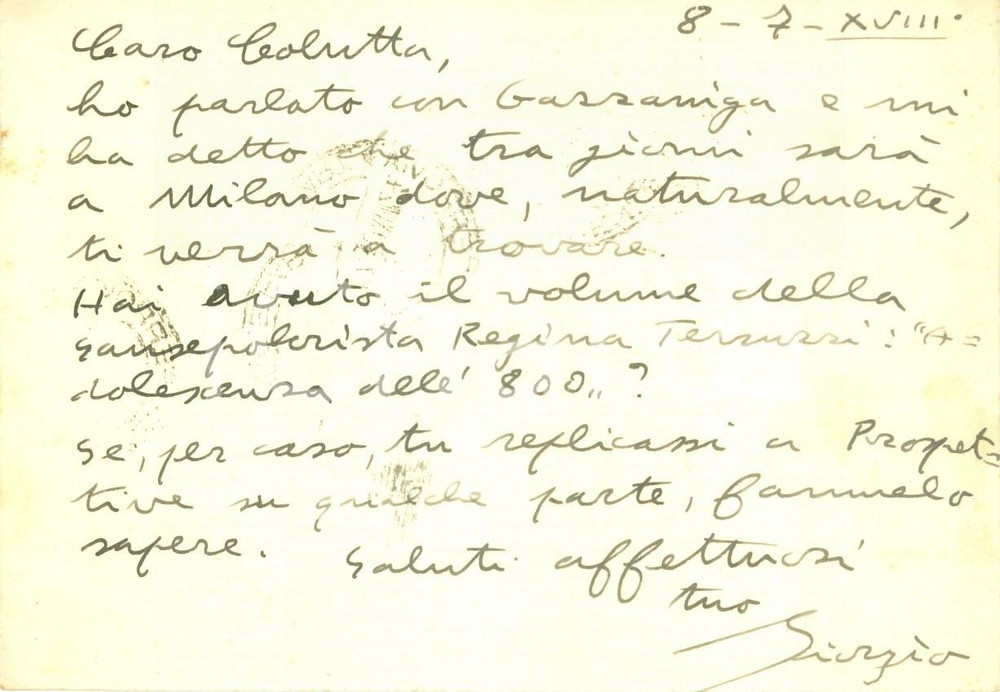 8 - 7 - XVIII°
Caro Colutta,
ho parlato con Gazzaniga e mi
ha detto che tra giorni sarà
a Milano dove, naturalmente,
ti verrà a trovare.
Hai avuto il volume della
sansepolcrista Regina Terruzzi: "A=
dolescenza dell' 800„ ?
Se, per caso, tu replicassi a Prospet=
tive su qualche parte, fammelo
sapere. Saluti affettuosi
tuo
Giorgio